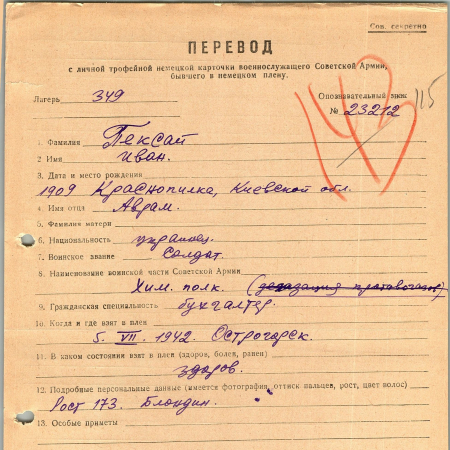 Сов. секретно
ПЕРЕВОД
с личной трофейной немецкой карточки военнослужащего Советской Армии,
бывшего в немецком плену.
Лагерь 349 Опознавательный знак
№ 23212
115
1. Фамилия Пексай
2. Имя Иван.
3. Дата и место рождения
1909 Краснопилка, Киевской обл.
4. Имя отца Аврам.
5. Фамилия матери
6. Национальность украинец.
7. Воинское звание Солдат.
8. Наименование воинской части Советской Армии
Хим. полк. (дегазация противогазов)
9. Гражданская специальность бухгалтер.
10. Когда и где взят в плен
5. VII. 1942. Острогорск.
11. В каком состоянии взят в плен (здоров, болен, ранен)
здоров.
12. Подробные персональные данные (имеется фотография, оттиск пальцев, рост, цвет волос)
Рост 173. Блондин.
13. Особые приметы